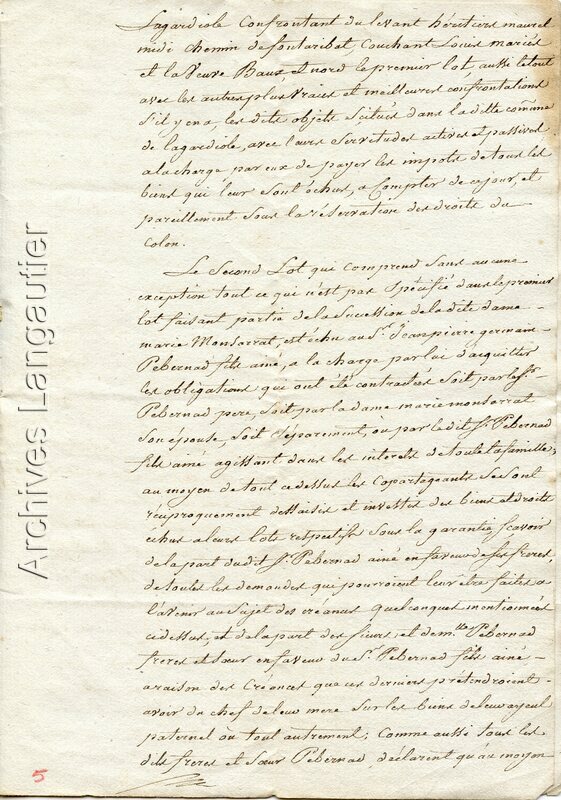 Lagardiole Confrontant du levant héritiers maurel
midi chemin defontaribat, Couchant Louis mariès
et la Veuve Baux, et nord le premier lot, aussi letout
avec les autres plus vraies et meilleures confrontations
s'il yena, les dits objets scitués dans la ditte comune
de lagardiole, avec leurs servetudes actives et passives
alacharge par eux de payer les impots de tous les
biens qui leur sont échus, a Compter de cejour, et
pareillement sous la réservation des droits du
colon.
Le Second Lot qui comprend sans aucune
exception tout ce qui n'est pas spécifié dans le premier
lot faisant partie de la succession de la dite dame
marie Monsarrat, est échu au Sr. Jeanpierre germain
Pebernad fils ainé, a la charge par lui d'aquitter
les obligations qui ont été contractées soit par le Sr.
Pebernad pere, soit par la dame marie monsarrat
son épouse, soit séparement, ou par le dit Sr. Pebernad
fils ainé agissant dans les interets de toute la famille;
au moyen de tout cedessus les copartageants se sont
réciproquement dessaisis et investis des biens et droits
échus a leurs lots respectifs sous la garantie, scavoir
de la part dudit Sr. Pebernad ainé en faveur de ses freres,
de toutes les demandes qui pourroient leur être faites a
l'avenir au sujet des creances quelconques mentionnées
cedessus, et de la part des sieurs et demlles Pebernad
freres et sœur en faveur du Sr. Pebernad fils ainé
araison des Créances que ces derniers prétendroient
avoir du chef de leur mere sur les biens de leur ayeul
paternel ou tout autrement; Comme aussi tous les
dits freres et sœur Pebernad déclarent qu'au moyen
5
Archives Langautier